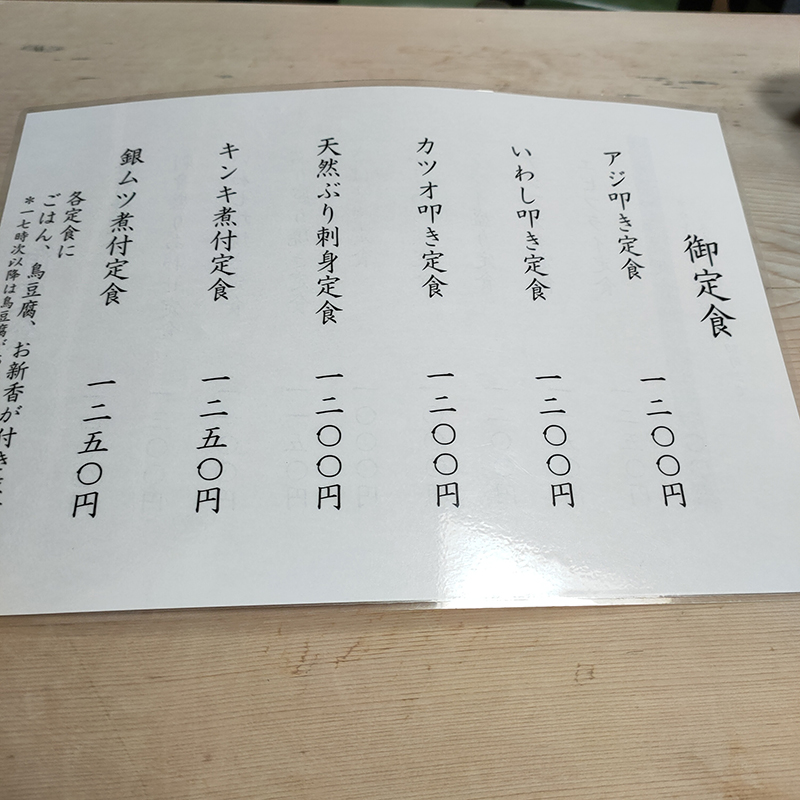 御定食
アジ叩き定食 一二〇〇円
いわし叩き定食 一二〇〇円
カツオ叩き定食 一二〇〇円
天然ぶり刺身定食 一二〇〇円
キンキ煮付定食 一二五〇円
銀ムツ煮付定食 一二五〇円
各定食に
ごはん、鳥豆腐、お新香が付き
＊一七時次以降は鳥豆腐が